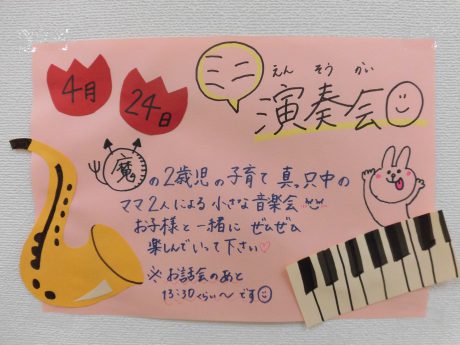 4月
24日
ミニ
えんそうかい
演奏会
魔の2歳児の子育て真っ只中の
ママ2人による小さな音楽会
お子様と一緒に ぜひぜひ
楽しんでいって下さい♡
※お話会のあと
13:30くらい〜です